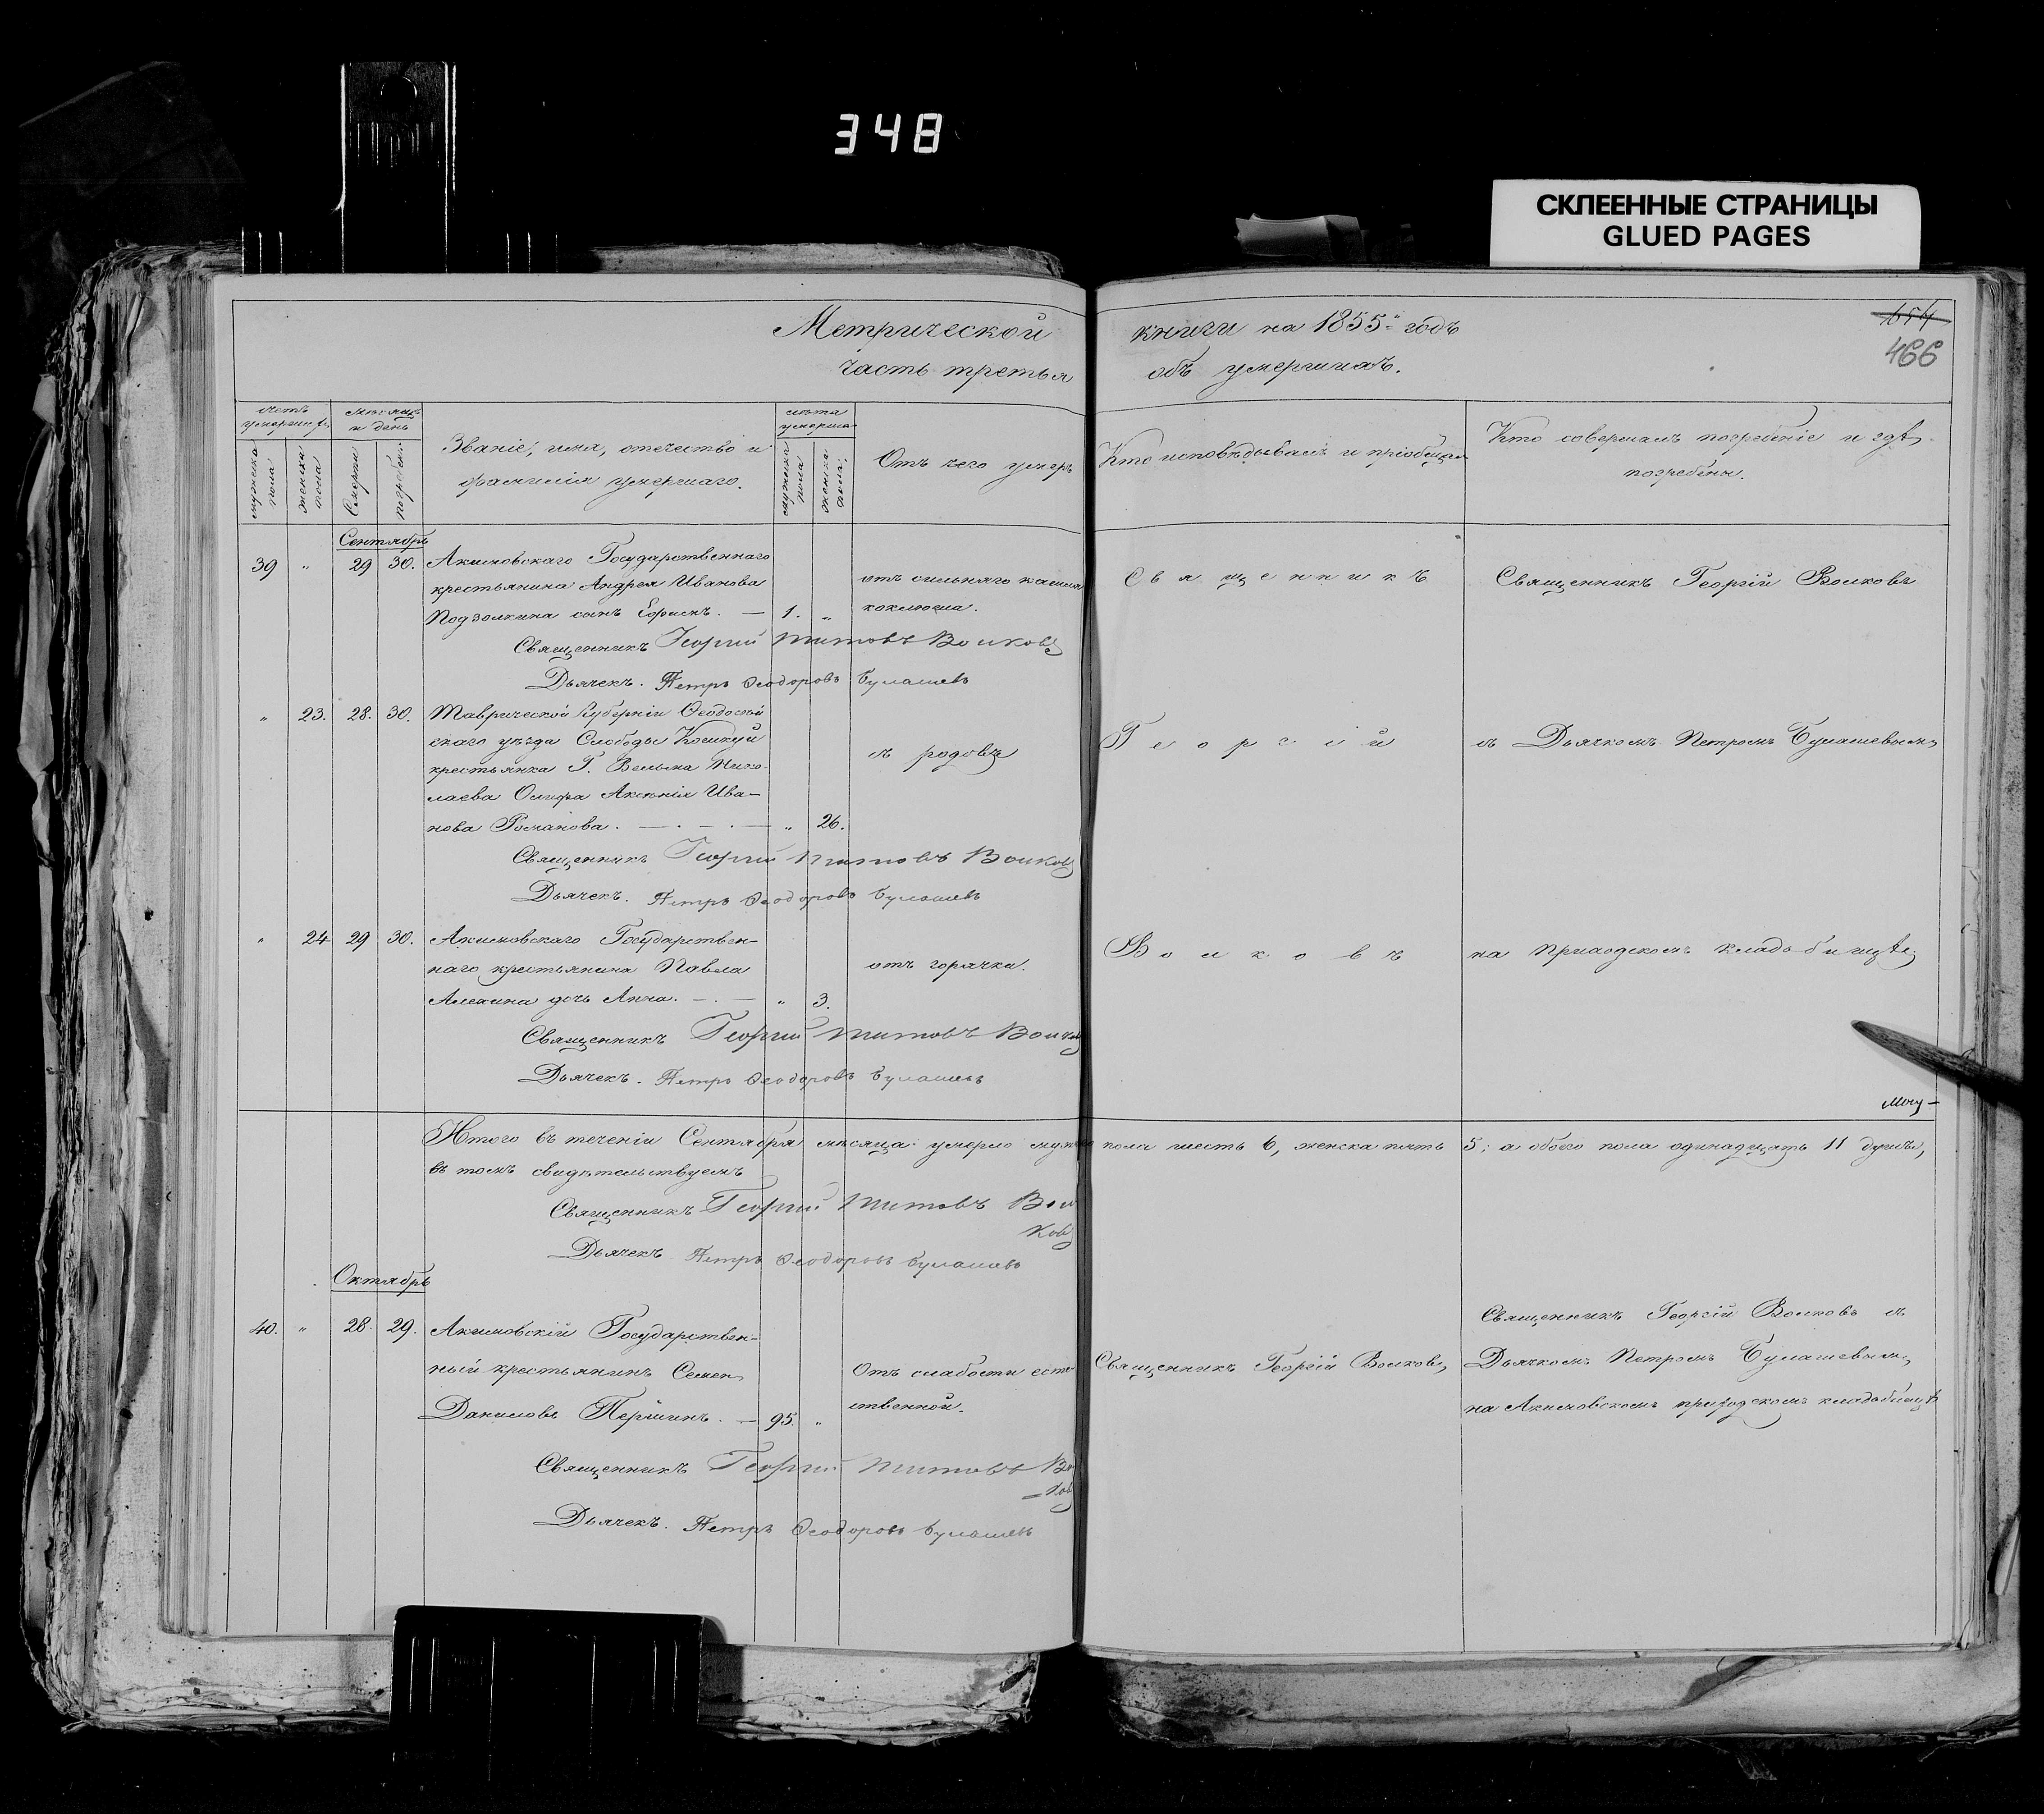 348
СКЛЕЕННЫЕ СТРАНИЦЫ
GLUED PAGES
Метрической книги на 1855й годъ
654
466
часть третья объ умершихъ.
Счетъ умершихъ
мужеска пола
женска пола
Мѣсяцъ и день
Смерти
погребен.
Званіе, имя, отечество и
фамилія умершаго.
лѣта умерша
мужеска пола
женска пола.
Отъ чего умеръ
Кто исповѣдывалъ и пріобщалъ
Кто совершалъ погребеніе и гдѣ
погребены.
Сентябрь
39 " 29 30. Акимовскаго Государственнаго
крестьянина Андрея Иванова
Подзолкина сынъ Ефимъ. — 1. "
отъ сильнаго кашля
коклюша.
Священникъ
Священникъ Георгій Волковъ
Священникъ Георгий Титовъ Волковъ
Дьячекъ. Петръ Ѳеодоровъ Булашевъ
" 23. 28. 30. Таврической Губерніи Ѳеодосій
скаго уѣзда Слободы
крестьянка Г. Нико
лаева Аксенія Ива—
нова Романова. — " 26.
съ родовъ
Георгій
съ Дьячкомъ Петромъ Булашевымъ
Священникъ Георгий Титовъ Волковъ
Дьячекъ. Петръ Ѳеодоровъ Булашевъ
" 24 29 30. Акимовскаго Государствен—
наго крестьянина Павла
Алехина дочь Анна. — " 3.
отъ горячки.
Волковъ
на приходскомъ кладьбищѣ
Священникъ Георгий Титовъ Волковъ
Дьячекъ. Петръ Ѳеодоровъ Булашевъ
Итого въ теченіи Сентября мѣсяца умерло мужеска пола шесть 6, женска пять 5; а обоего пола одинадцать 11 душъ,
въ томъ свидѣтельствуемъ
Священникъ Георгий Титовъ Вол
ковъ
Дьячекъ Петръ Ѳеодоровъ Булашевъ
Октябрь
40. " 28. 29. Акимовскій Государствен—
ный крестьянинъ Семенъ
Даниловъ Першинъ. — 95. "
Отъ слабости есте
ственной.
Священникъ Георгій Волковъ,
Священникъ Георгій Волковъ съ
Дьячкомъ Петромъ Булашевымъ,
на Акимовскомъ приходскомъ кладьбищѣ
Священникъ Георгий Титовъ Вол
=ковъ
Дьячекъ. Петръ Ѳеодоровъ Булашевъ